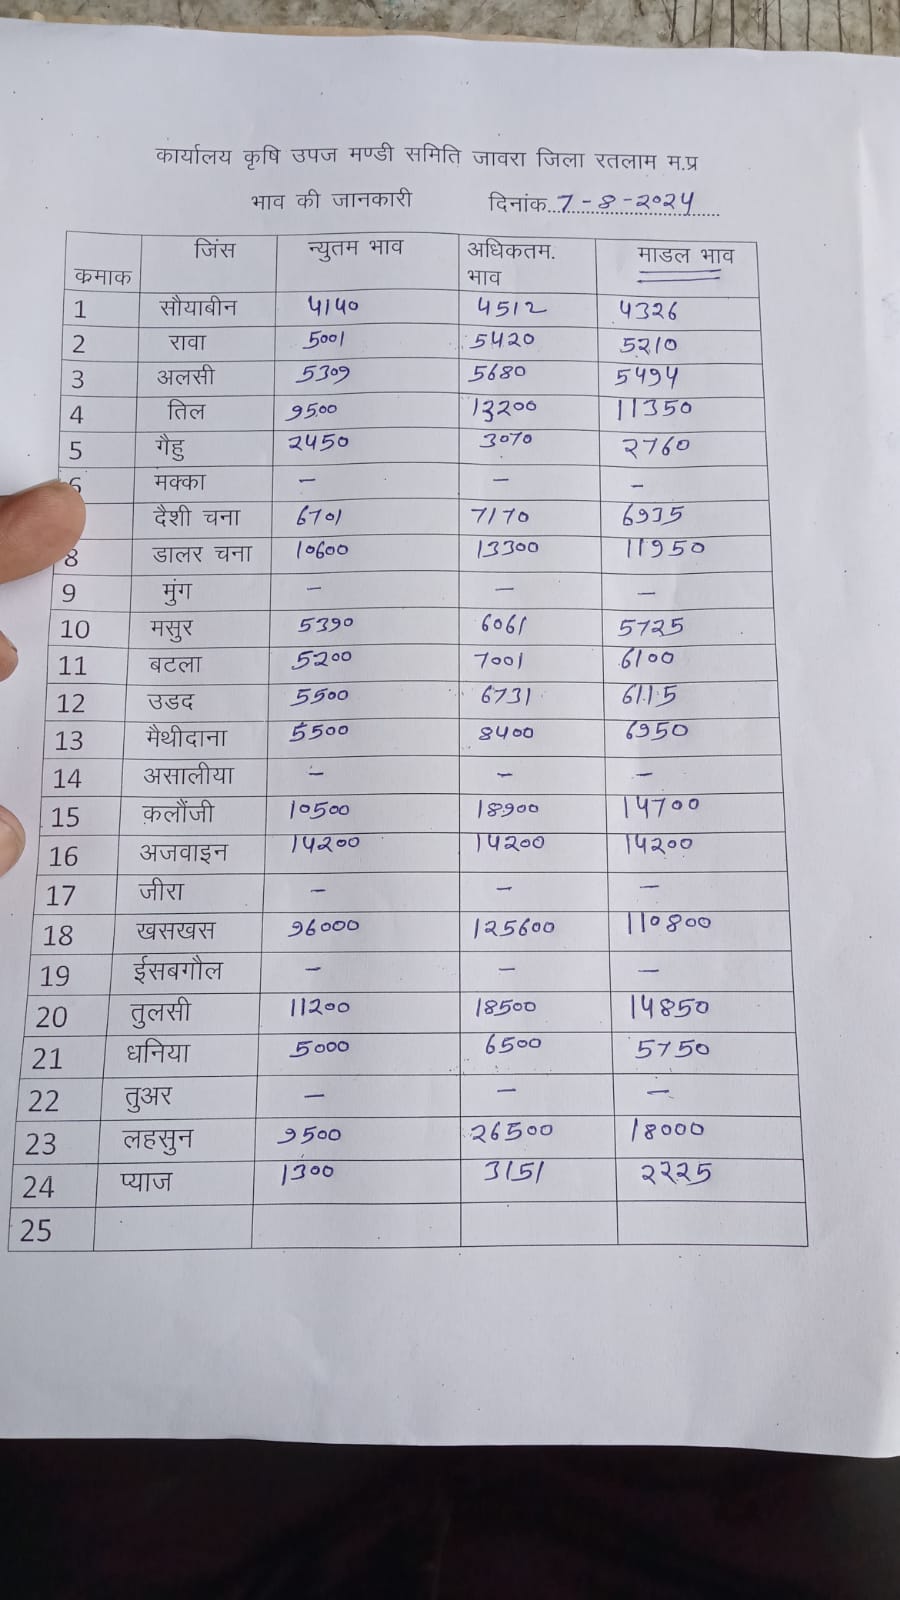 कार्यालय कृषि उपज मण्डी समिति जावरा जिला रतलाम म.प्र
भाव की जानकारी दिनांक 7-8-2024
कमाक जिंस न्युतम भाव अधिकतम. भाव माडल भाव
1 सौयाबीन 4140 4512 4326
2 रावा 5001 5420 5210
3 अलसी 5309 5680 5494
4 तिल 9500 13200 11350
5 गैहु 2450 3070 2760
6 मक्का - - -
दैशी चना 6701 7170 6935
8 डालर चना 10600 13300 11950
9 मुंग - - -
10 मसुर 5390 6061 5725
11 बटला 5200 7001 6100
12 उडद 5500 6731 6115
13 मैथीदाना 5500 8400 6950
14 असालीया - - -
15 क़लौंजी 10500 18900 14700
16 अजवाइन 14200 14200 14200
17 जीरा - - -
18 खसखस 96000 125600 110800
19 ईसबगौल - - -
20 तुलसी 11200 18500 14850
21 धनिया 5000 6500 5750
22 तुअर - - -
23 लहसुन 9500 26500 18000
24 प्याज 1300 3151 2225
25